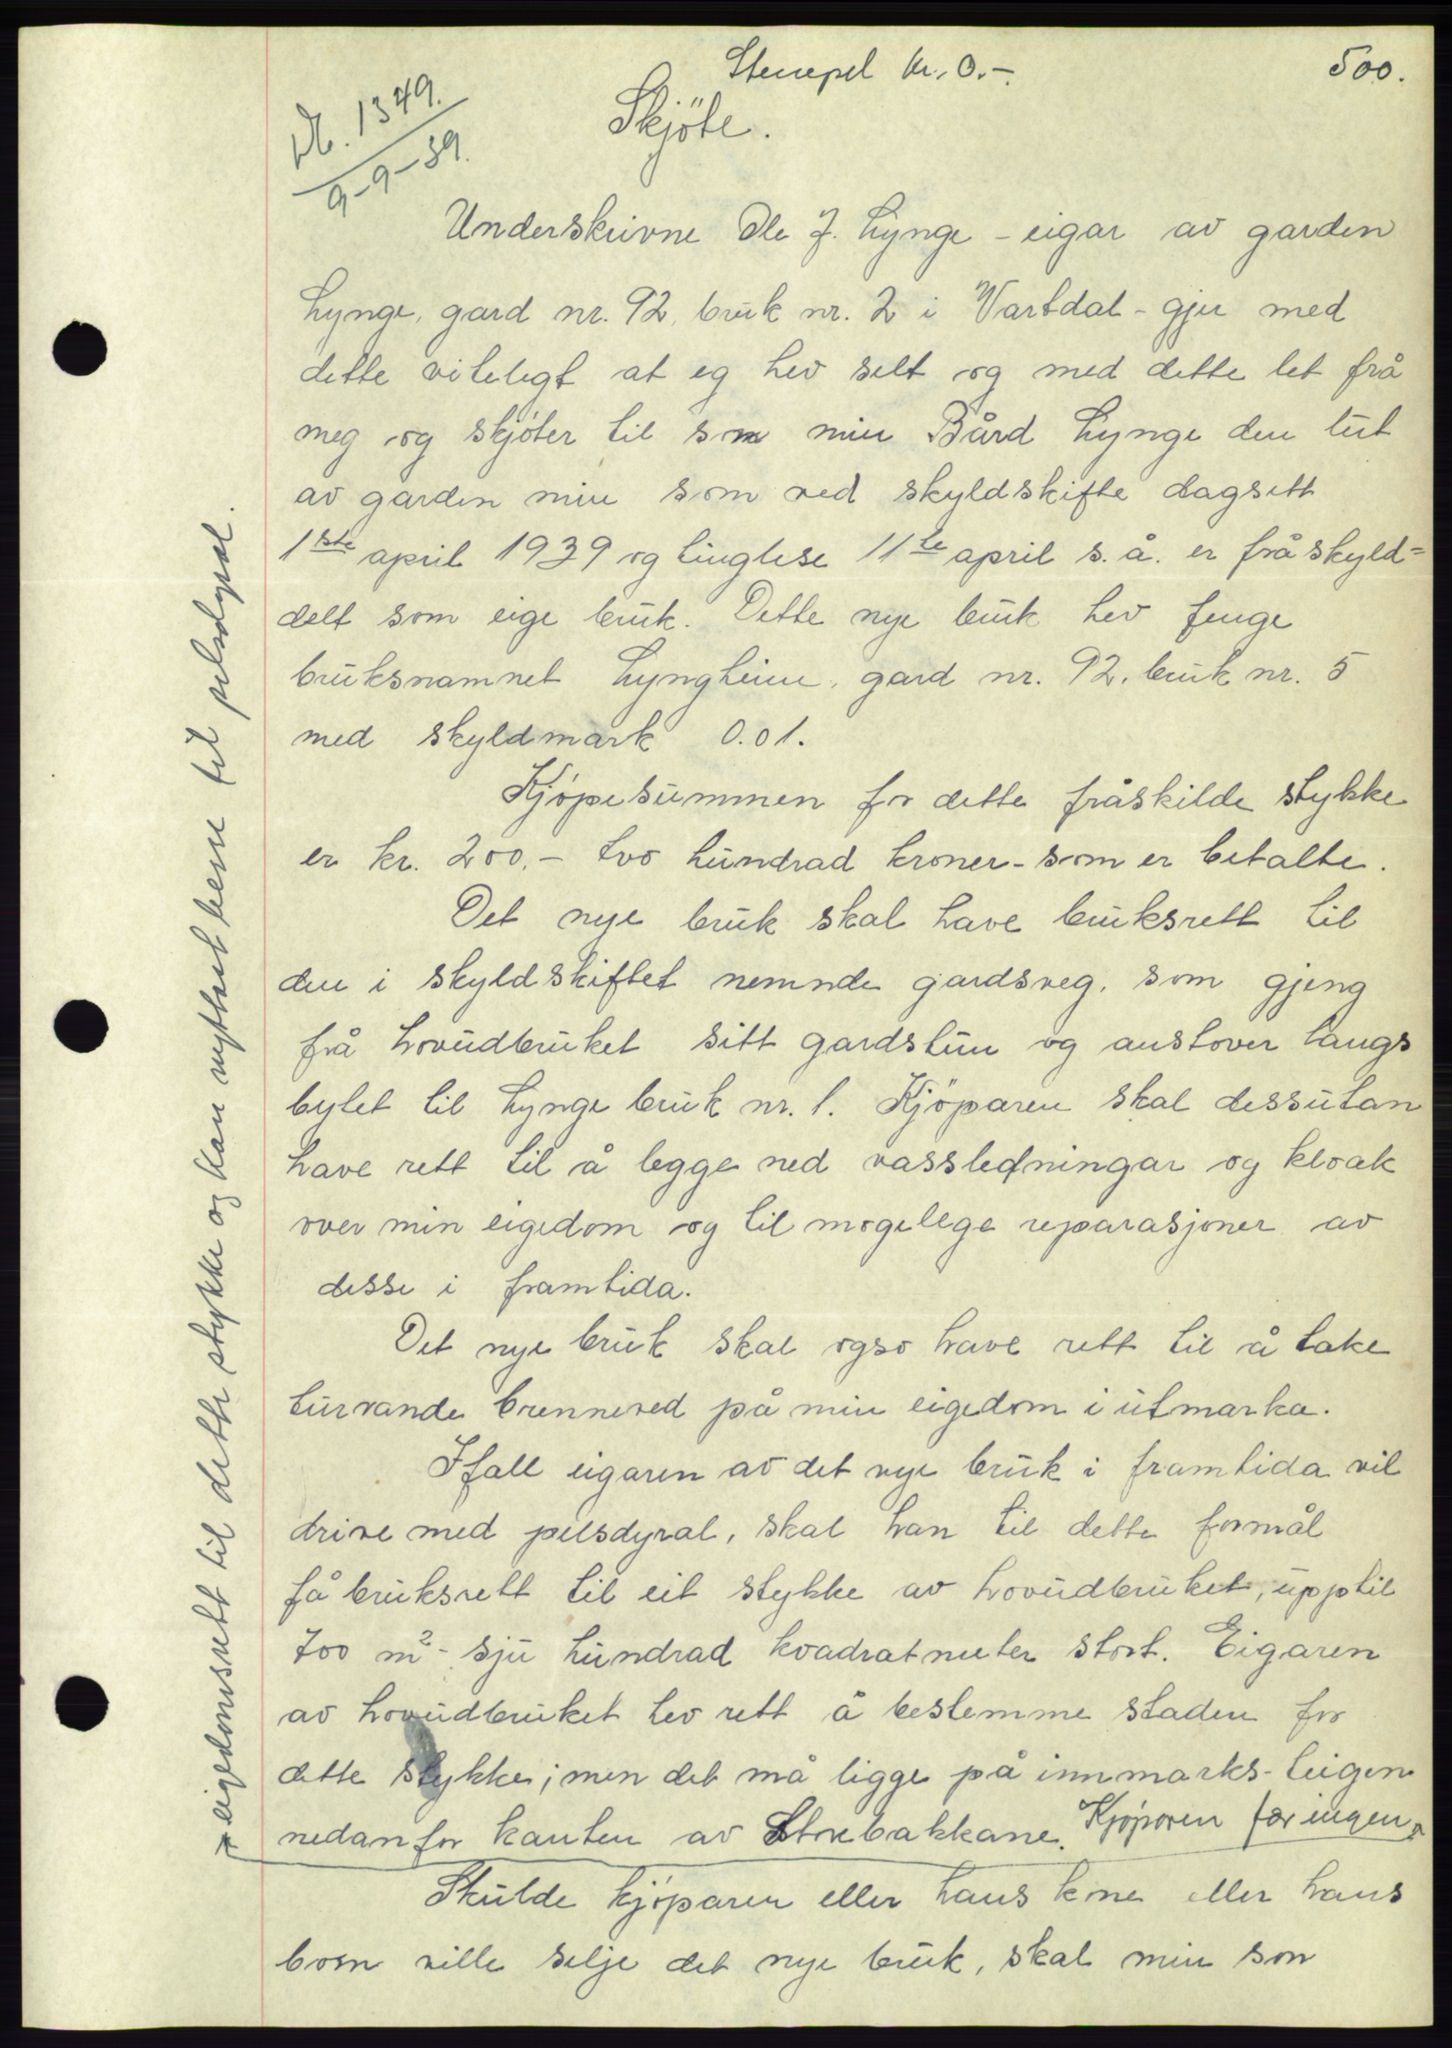 Stempel kr. 0.-
500.
Nr. 1349.
9-9-39.
Skjöte.
Underskrivne Ole J. Lynge - eigar av garden
Lynge, gard nr. 92, bruk nr. 2 i Vartdal - gjer med
dette vitelegt at eg hev selt og med dette let frå
meg og skjöter til son min Bård Lynge den lut
av garden min som ved skyldskifte dagsett
1ste april 1939 og tinglese 11te april s. å. er fråskyld=
delt som eige bruk. Dette nye bruk hev fenge
bruksnamnet Lyngheim, gard nr. 92, bruk nr. 5
med skyldmark 0.01.
Kjöpesummen for dette fråskilde stykke
er kr. 200.- tvo hundrad kroner - som er betalte.
Det nye bruk skal have bruksrett til
den i skyldskiftet nemnde gardsveg, som gjeng
frå hovudbruket sitt gardstun og austover langs
bytet til Lynge bruk nr. 1. Kjöparen skal dessutan
have rett til å legge ned vassledningar og kloak
over min eigedom og til mogelege reparasjoner av
desse i framtida.
Det nye bruk skal ogso have rett til å take
turvande brenneved på min eigedom i utmarka.
Ifall eigaren av det nye bruk i framtida vil
drive med pelsdyral, skal han til dette formål
få bruksrett til eit stykke av hovudbruket, upptil
700 m² - sju hundrad kvadratmeter stort. Eigaren
av hovudbruket hev rett å bestemme staden for
dette stykke; men det må ligge på innmarks-teigen
nedanfor kanten av Storebakkane. Kjöparen fær ingen
eigedomsrett til dette stykke og kan nyttast berre til pelsdyral.
Skulde kjöparen eller hans kone eller hans
born ville selje det nye bruk, skal min son